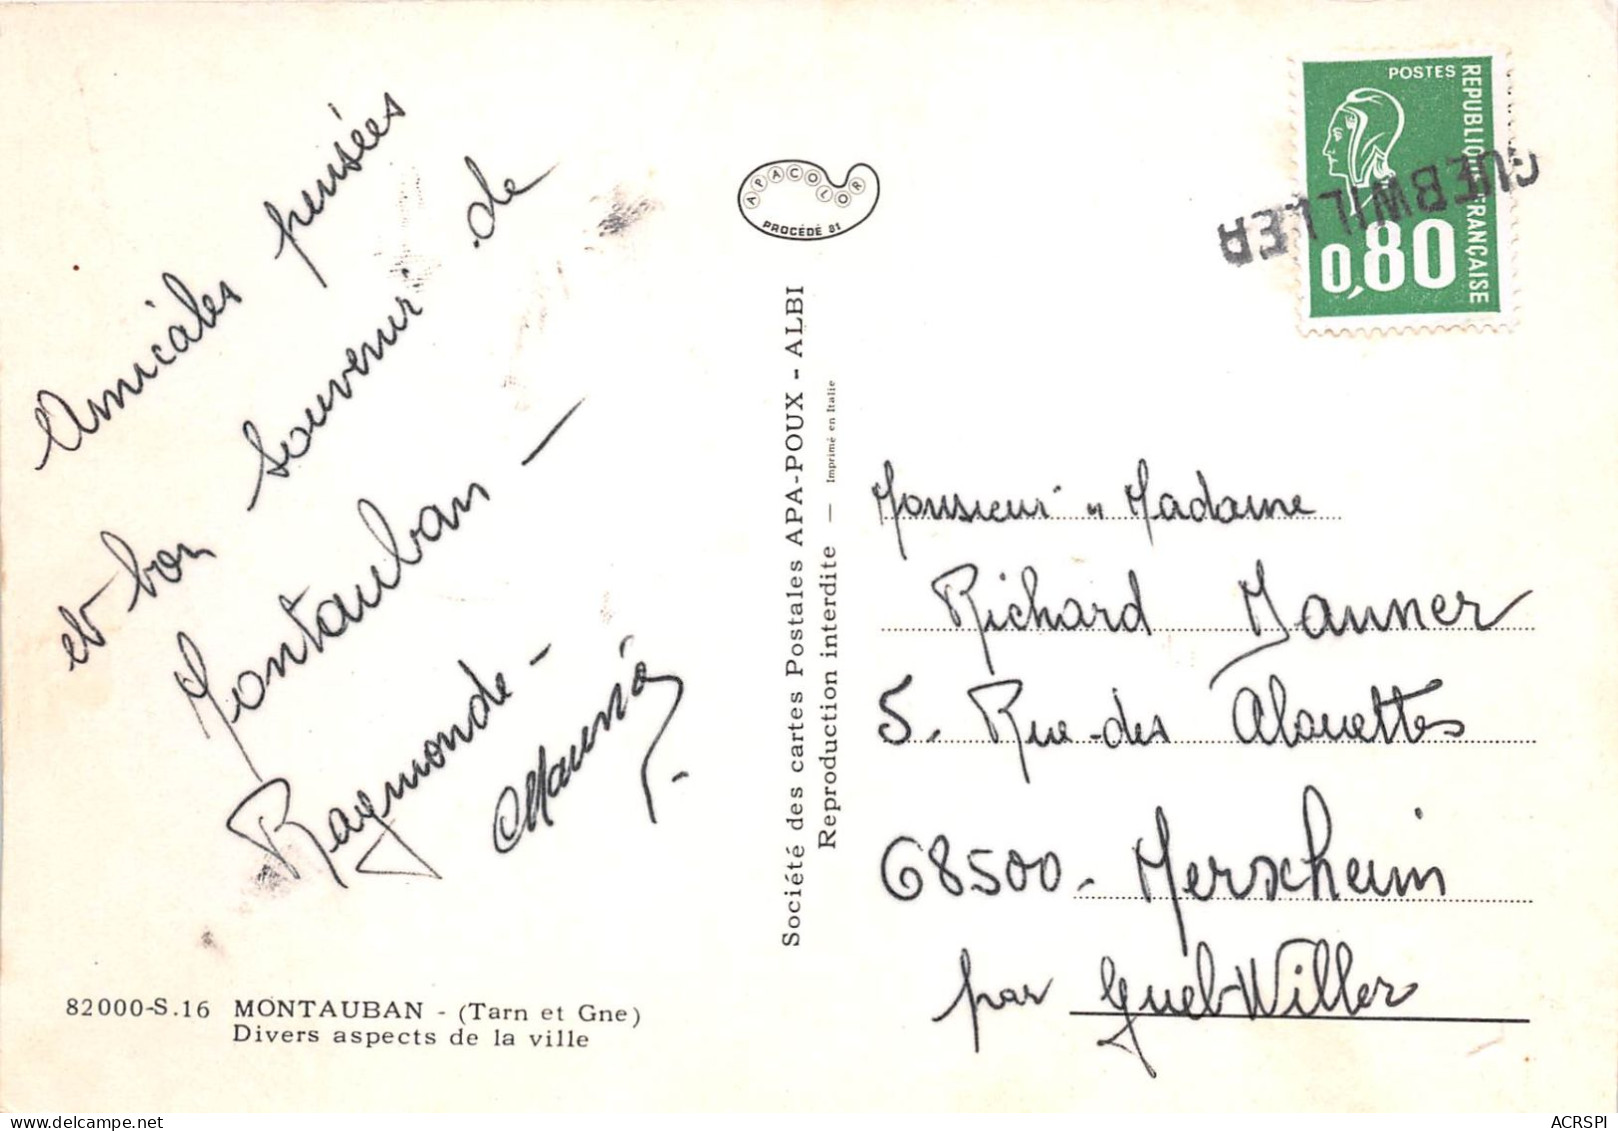 Amicales pensées
et bon souvenir de
Montauban —
Raymonde -
82000-S.16 MONTAUBAN - (Tarn et Gne)
Divers aspects de la ville
APACOLOR
PROCÉDÉ 81
Société des cartes Postales APA-POUX - ALBI
Reproduction interdite — Imprimé en Italie
POSTES
REPUBLIQUE FRANÇAISE
0,80
GUEBWILLER
Monsieur " Madame
Richard Janner
5. Rue-des Alouettes
68500- Merxheim
par GuebWiller
ACRSPI